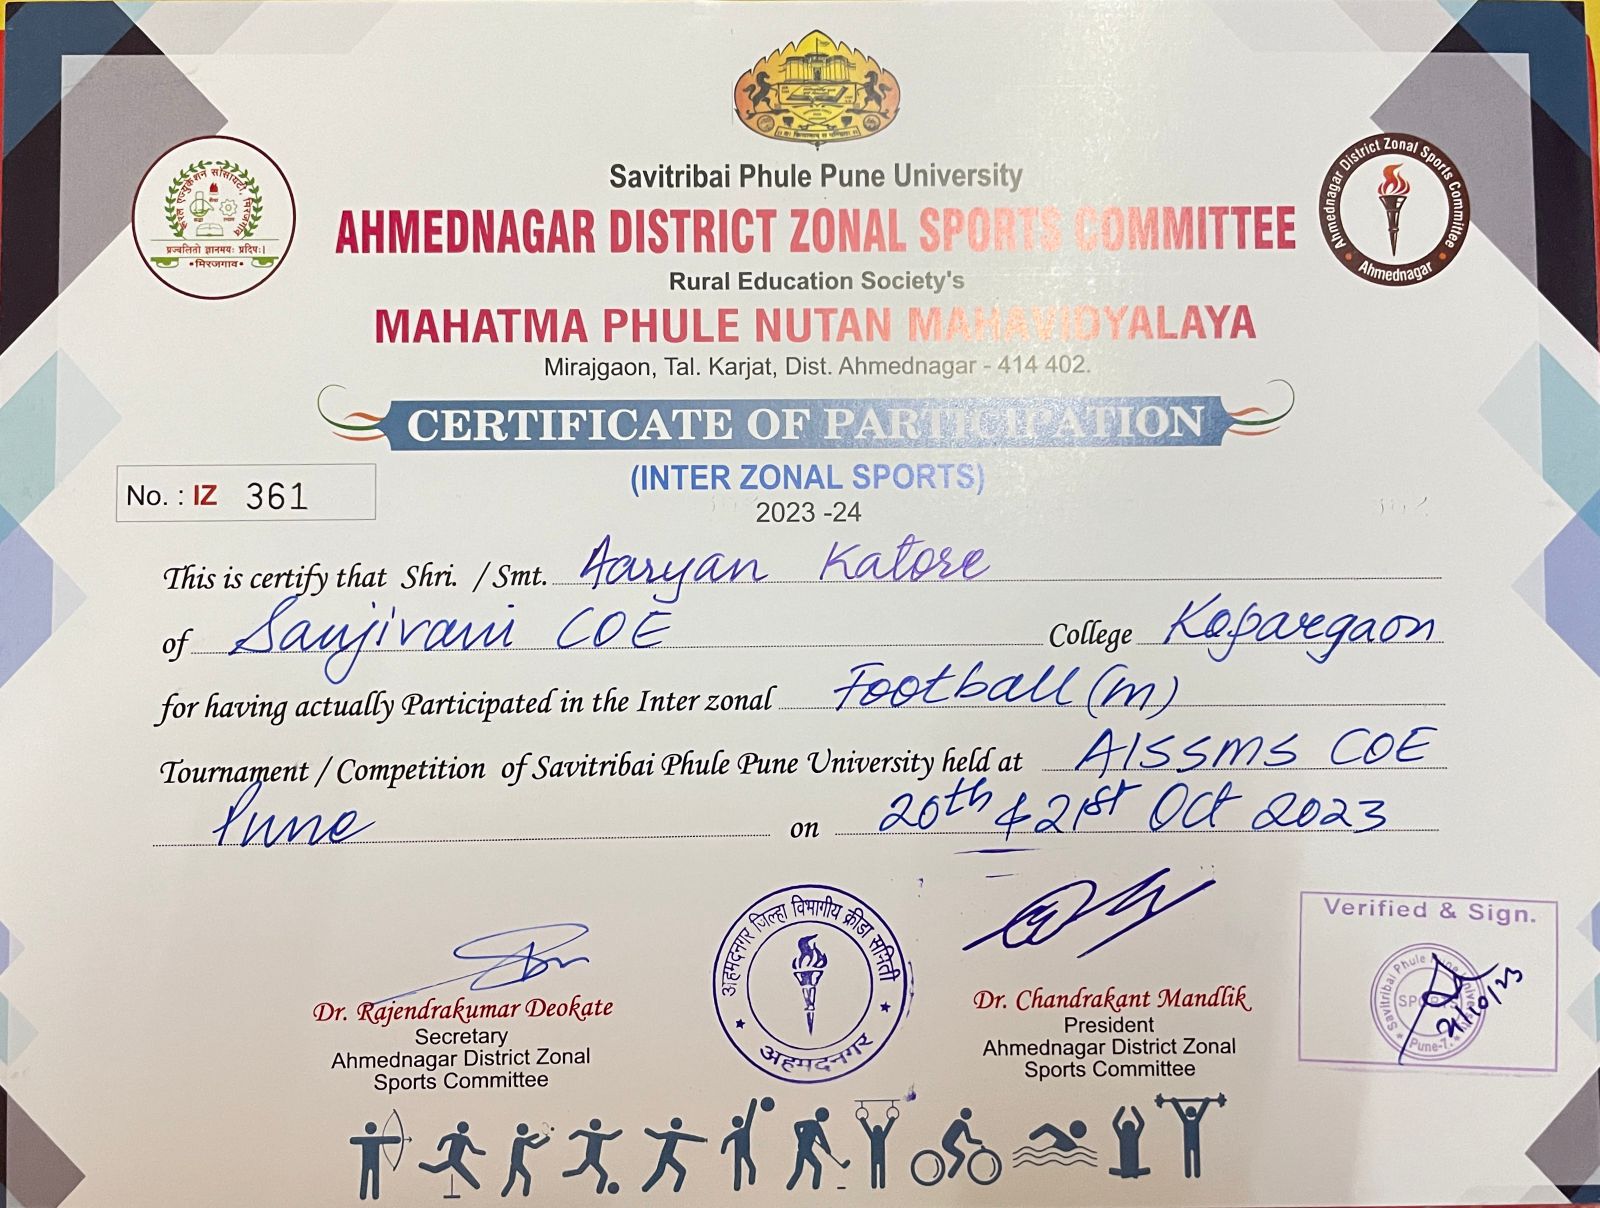 Savitribai Phule Pune University
AHMEDNAGAR DISTRICT ZONAL SPORTS COMMITTEE
Rural Education Society's
MAHATMA PHULE NUTAN MAHAVIDYALAYA
Mirajgaon, Tal. Karjat, Dist. Ahmednagar - 414 402.
रुरल एज्युकेशन सोसायटी, मिरजगांव
प्रज्वलितो ज्ञानमयः प्रदिपः।
मिरजगाव
Ahmednagar District Zonal Sports Committee
Ahmednagar
CERTIFICATE OF PARTICIPATION
(INTER ZONAL SPORTS)
No. : IZ 361
2023 -24
This is certify that Shri. / Smt. Aaryan Katore
of Sanjivani COE College Kopargaon
for having actually Participated in the Inter zonal Football (m)
Tournament / Competition of Savitribai Phule Pune University held at AISSMS COE
Pune on 20th & 21st Oct 2023
Dr. Rajendrakumar Deokate
Secretary
Ahmednagar District Zonal
Sports Committee
अहमदनगर जिल्हा विभागीय क्रीडा समिती
अहमदनगर
Dr. Chandrakant Mandlik
President
Ahmednagar District Zonal
Sports Committee
Verified & Sign.
Savitribai Phule Pune University
SPORTS
Pune-7.
21/10/23